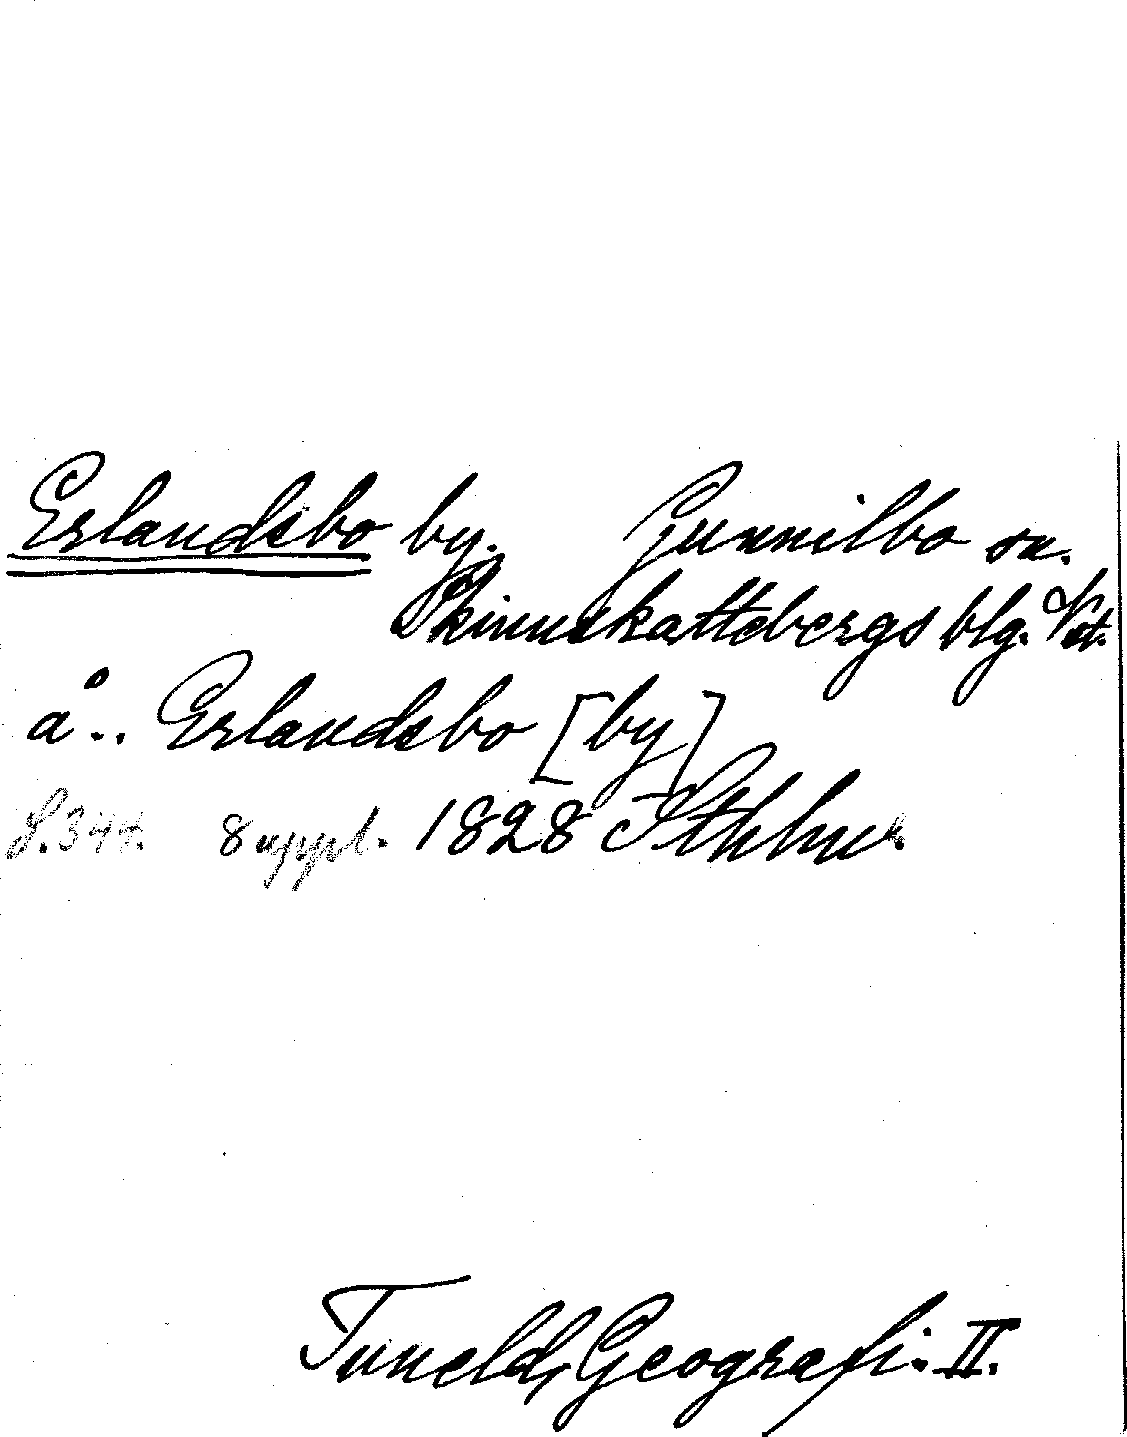 Erlandsbo by. Gunnilbo sn.
Skinnskattebergs blg. Vst.
å.. Erlandsbo [by]
S.344. 8 uppl. 1828 Sthlm
Tuneld, Geografi. II.